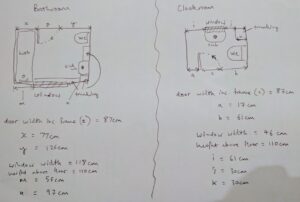 Bathroom
x
z
y
WC
bath
sink
trunking
window
m
n
door width inc frame (z) = 87cm
x = 77cm
y = 126cm
window width = 118cm
height above floor = 110cm
m = 55cm
n = 97cm
Cloakroom
i
window
j
sink
trunking
WC
k
a
c
b
door width inc frame (c) = 87cm
a = 17cm
b = 61cm
window width = 46cm
height above floor = 110cm
i = 61cm
j = 30cm
k = 30cm